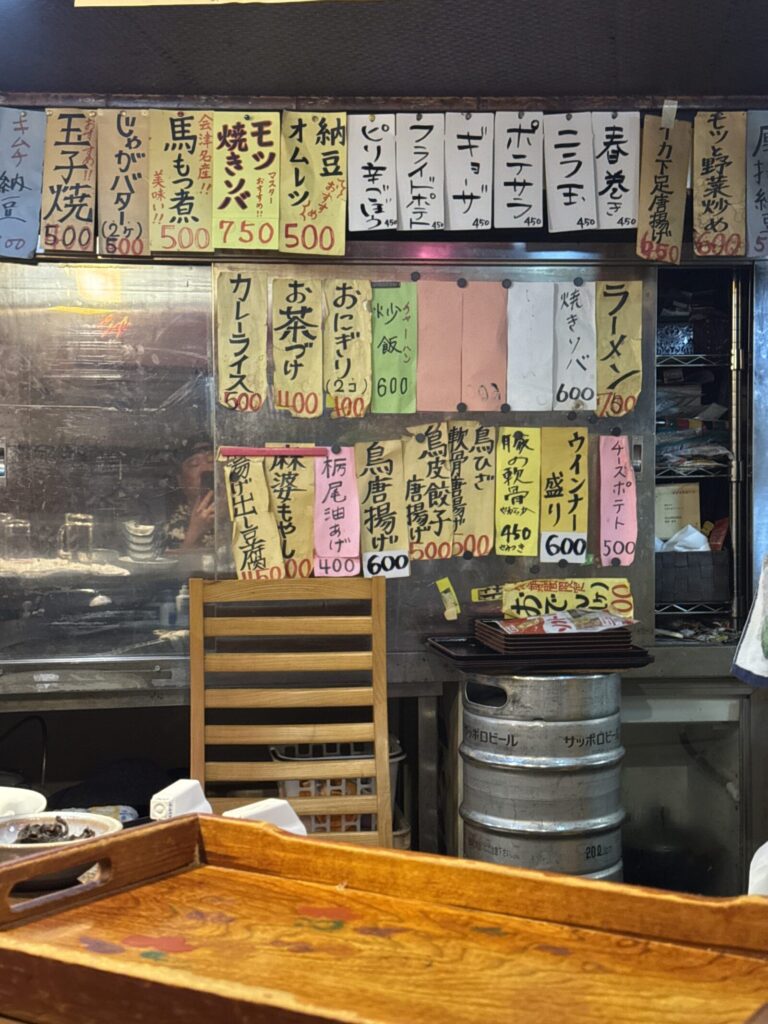 キムチ納豆
500
おすすめ!!
玉子焼
500
じゃがバター
(2ヶ)
500
馬もつ煮
会津名産!!
美味い!!
500
モツ
焼きソバ
マスター
おすすめ!!
750
納豆
オムレツ
500
ピリ辛ごぼう
450
フライドポテト
450
ギョーザ
450
ポテサラ
450
ニラ玉
450
春巻き
450
カ下足唐揚げ
650
モツと野菜炒め
600
納豆
500
カレーライス
500
お茶づけ
400
おにぎり
(2コ)
400
チャーハン
炒飯
600
焼きソバ
600
ラーメン
700
揚げ出し豆腐
450
麻婆もやし
500
栃尾油あげ
400
鳥唐揚げ
600
鳥皮餃子
唐揚げ
500
鳥ひざ
軟骨唐揚げ
500
豚の軟骨
やわらか
450
ウインナー
盛り
600
チーズポテト
500
おでん
サッポロビール
サッポロビール
20ℓ